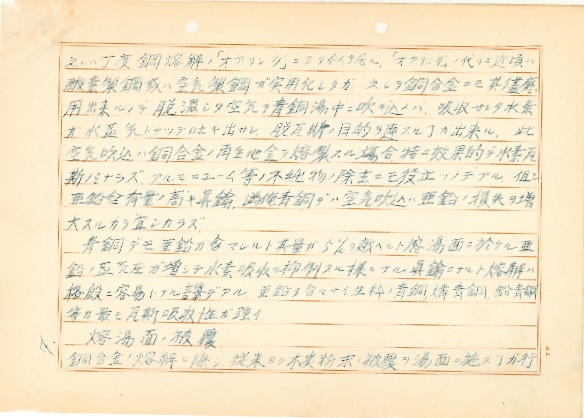 之ハ丁度鋼熔解ノ「オアリング」ニヨク似テ居ル、「オアリング」ノ代リニ近頃ハ
酸素製鋼或ハ空気製鋼ガ実用化シタガ、之レヲ銅合金ニモ其儘応
用出来ルノデ脱湿シタ空気ヲ青銅湯中ニ吹キ込メバ、吸収サレタ水素
ガ水蒸気トナッテ吐キ出サレ、脱瓦斯ノ目的ヲ達スル事ガ出来ル。此
空気吹込ハ銅合金ノ再生地金ヲ熔製スル場合特ニ効果的デ水素瓦
斯ノミナラズアルミニューム等ノ不純物ノ除去ニモ役立ツノデアル 但シ
亜鉛含有量ノ高キ真鍮、青銅デハ空気吹込ハ亜鉛ノ損失ヲ増
大スルカラ宜シカラズ
青銅デモ亜鉛ガ含マレルト其量ガ5%ヲ越ヘルト熔湯面ニ於ケル亜
鉛ノ蒸気圧ガ増シテ水素吸収ヲ抑制スル様ニナル真鍮ニナルト熔解ハ
格段ニ容易トナル訳デアル、亜鉛ヲ含マナイ生粋ノ青銅、燐青銅、鉛青銅
等ガ最モ瓦斯吸収性ガ強イ
熔湯面ノ被覆
銅合金ノ熔解ニ際シ従来ヨリ木炭粉末ノ被覆ヲ湯面ニ施ス事ガ行